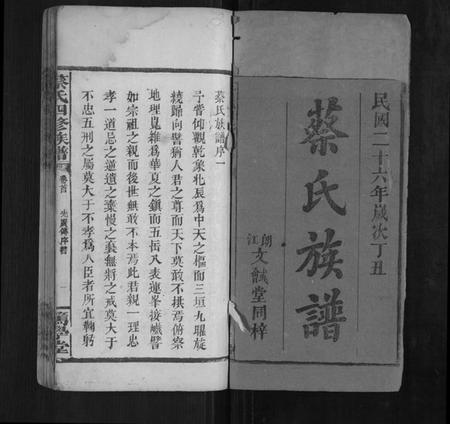 民國二十六年歲次丁丑
蔡氏族譜
朗江文馘堂同梓
蔡氏族譜序一
予嘗仰觀乾象北辰為中天之樞而三垣九曜旋
繞歸向譬猶人君之尊而天下莫敢不拱焉俯察
地理崑雒為華夏之鎮而五岳八表連峯接巘譬
如宗祖之親而後世無敢不本焉此君親一理忠
孝一道忌之遜遺之棄慢之褻無將之戒莫大于
不忠五刑之屬莫大于不孝為人臣者所宜鞠躬
蔡氏四修族譜
卷首
先
序
一
堂